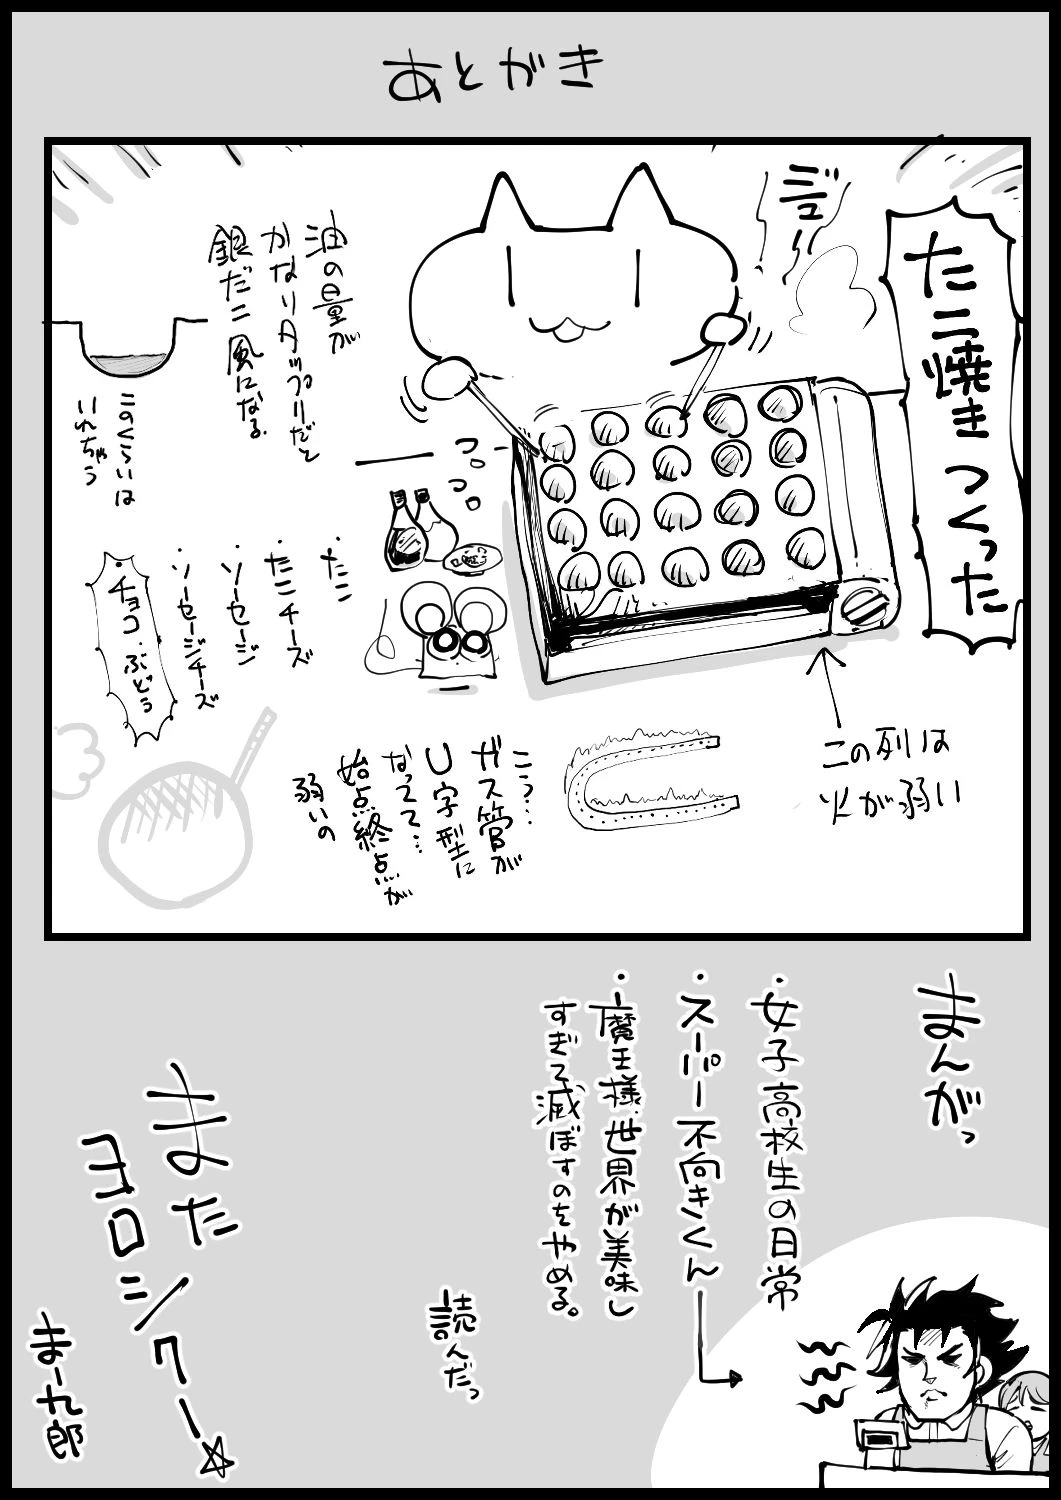 あとがき
たこ焼きつくった
ジューッ
油の量が
かなりタップリだと
銀だこ風になる
このくらいは
いれちゃう
つ。
つ。
・たこ
・たこチーズ
・ソーセージ
・ソーセージチーズ
・チョコ・ぶどう
この列は
火が弱い
こう…
ガス管が
U字型に
なってて…
始点終点が
弱いの
まんがっ
・女子高校生の日常
・スーパー不向きくん
・魔王様、世界が美味し
すぎて滅ぼすのをやめる。
読んだっ
また
ヨロシクー☆
まー九郎